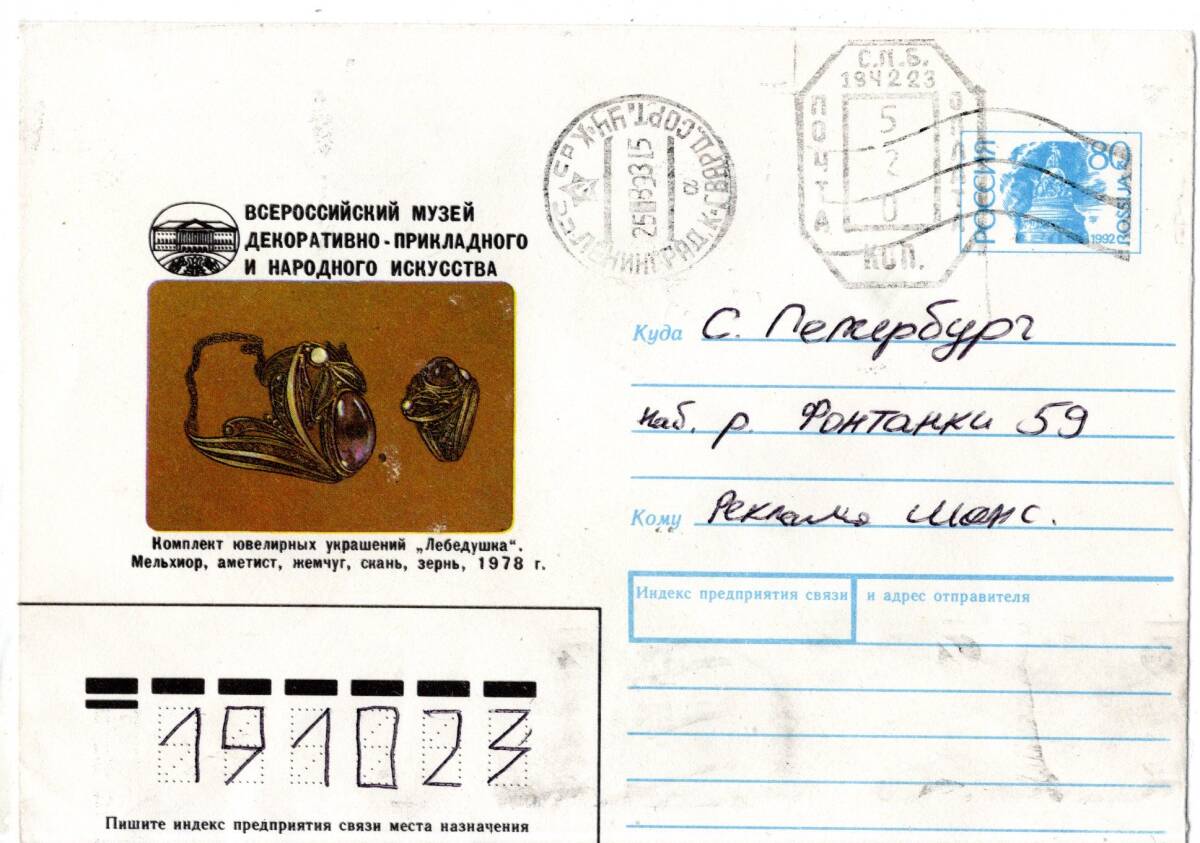 ВСЕРОССИЙСКИЙ МУЗЕЙ
ДЕКОРАТИВНО-ПРИКЛАДНОГО
И НАРОДНОГО ИСКУССТВА
Комплект ювелирных украшений „Лебедушка“.
Мельхиор, аметист, жемчуг, скань, зернь, 1978 г.
СССР
ЛЕНИНГРАД
С.П.Б.
194223
ПОЧТА
5
2
0
КОП.
РОССИЯ
80
ROSSIJA
1992
Куда С. Петербург
наб. р. Фонтанки 59
Кому Реклама Шанс.
Индекс предприятия связи и адрес отправителя
191023
Пишите индекс предприятия связи места назначения